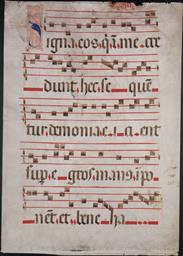 Signa eos q̄ ī me cre
dunt hec se quē
tur demonia e i ci ent
sup e gros man9 īpo
nēt et bene ha